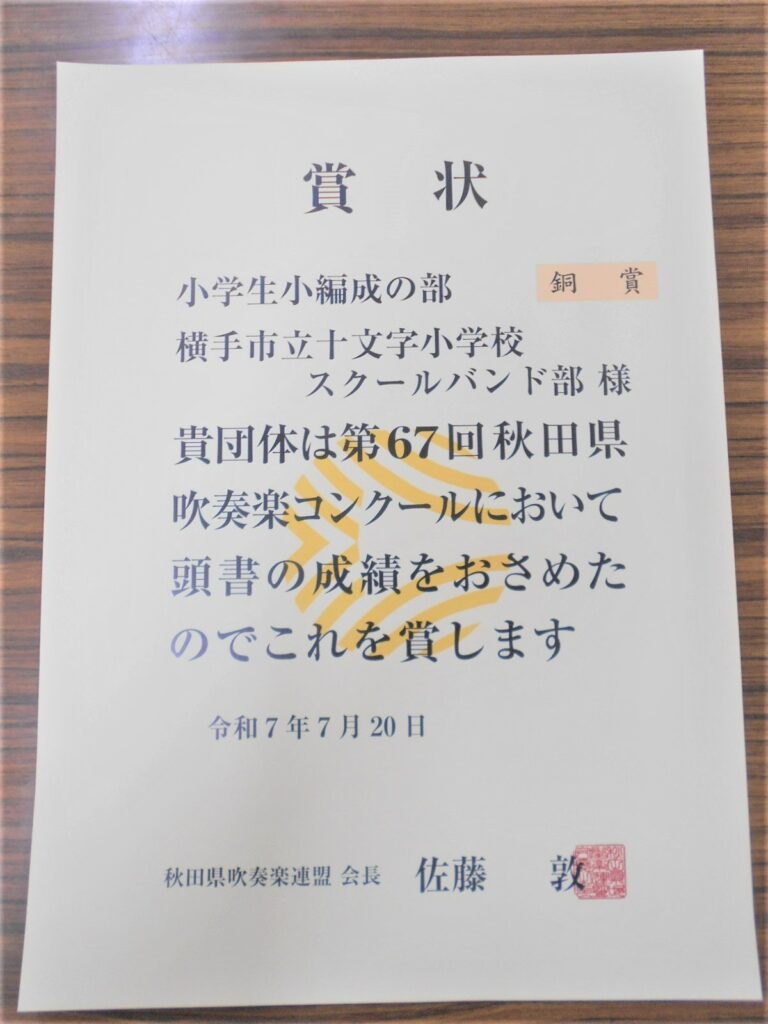 賞 状
小学生小編成の部 銅 賞
横手市立十文字小学校
スクールバンド部 様
貴団体は第67回秋田県
吹奏楽コンクールにおいて
頭書の成績をおさめた
のでこれを賞します
令和7年7月20日
秋田県吹奏楽連盟 会長 佐藤 敦